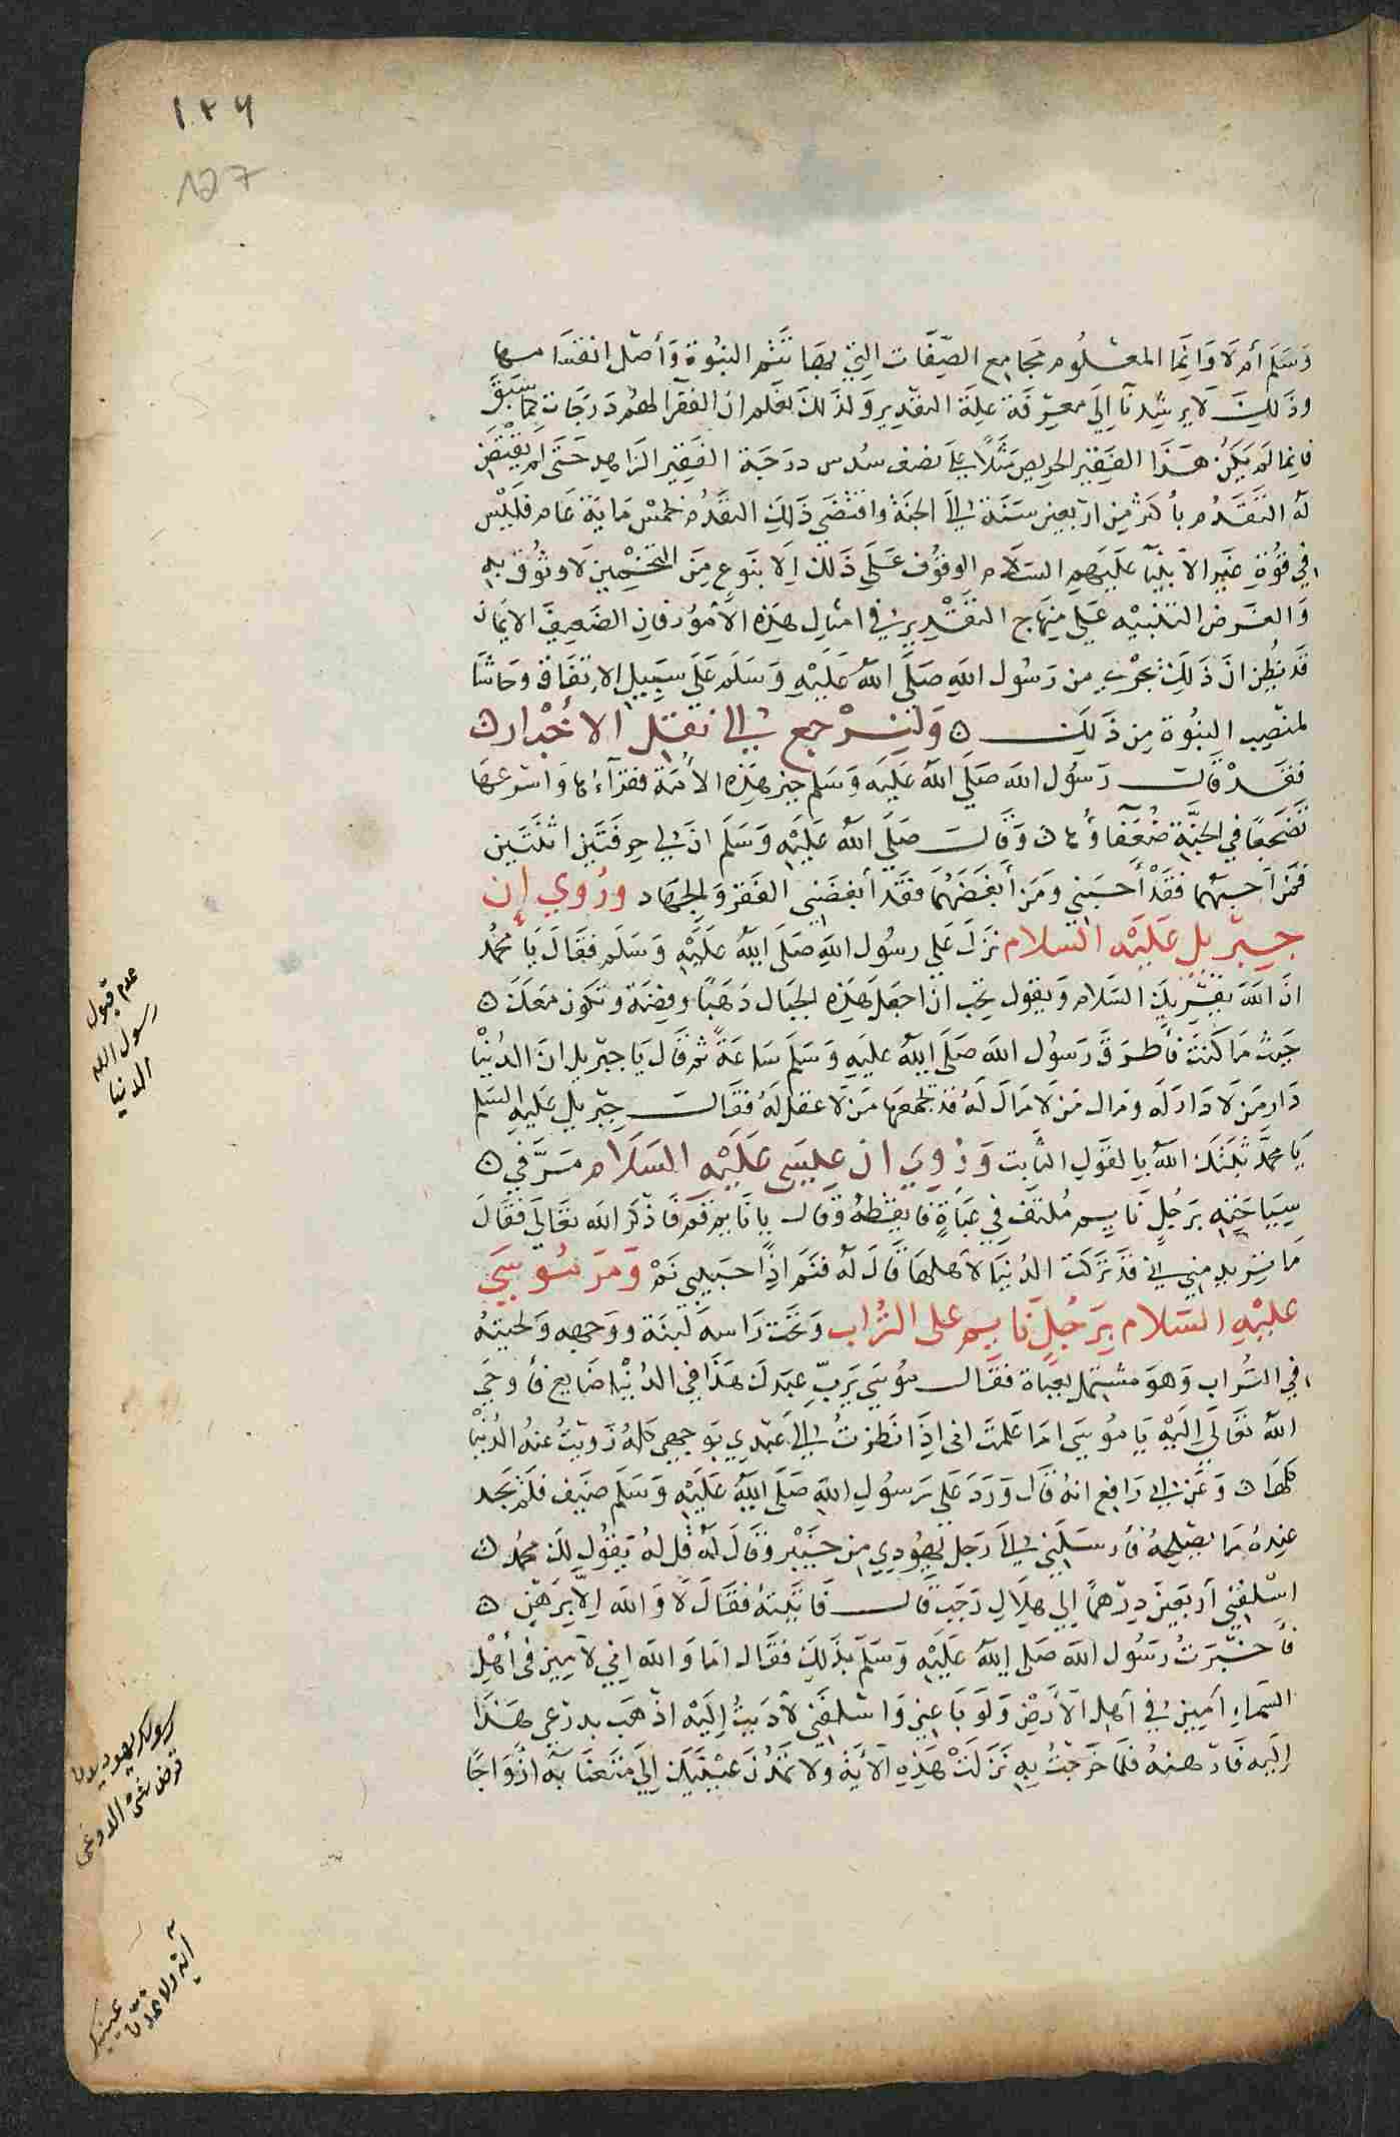 ١٢٦
127
وَسَلَم أم لَا وَانَّما المعْلُوم مَجامِع الصّفَات التِي بِهَا تَتم النبُوة وَأصْل انقسَامها
وذَلِكَ لَا يرشِدنَا اِلَى معْرِفَة علِة التقدِير وَلذَلِكَ نعْلم ان الفقَرآ لهُم دَرَجَات كما سَبَقَ
فانما لَم يَكُن هَذَا الفَقِير الحريص مَثَلًا على نصف سُدس درَجَة الفَقِير الزاهِد حَتى لم يَقْتَض
لَهُ التَقَدُم بأكثَر مِن ارْبعين سَنَة الى الجنَة واقتضَى ذَلِك التقَدُم خمْس مَاية عَام فَليْس
في قوُةِ غَيْر الانبيَآ عَليهِم السَلَام الوقوُف عَلَى ذَلك اِلا بنَوعٍ مِنَ التخمِين لَا وثُوق بهِ
وَالغَرض التنبِيْه عَلى مِنهَاج التقدِير في امثِال هَذِه الأمُور فَان الضعِيف الايمَان
قد يظن انَ ذَلِكَ يجْري من رَسُول اللَهِ صَلَى اللهُ عَلَيْهِ وَسَلَم عَلَى سَبِيل الاتفَاق وحَاشَا
لمنصِب النبُوة مِن ذَلِكَ ن وَلْنرْجع الى نقل الأخْبَار ن
فقَدْ قَالَ رسُول الله صَلَى اللهُ عَليَه وَسَلَم خير هَذِه الأمَة فقرَآءُهَا وَاسْرعهَا
تَضجُعًا في الجَنَّة ضُعَفآؤُهَا ن وَقَالَ صَلَى اللهُ عَلَيْهِ وَسَلَم انَ لي حِرفَتَين اثنتَين
فمَن احبهُما فقَدْ أحَبَني وَمَن أبغَضَهُمَا فقَد أبغضَني الفَقر وَالجهَاد ورُوي إن
جبريل عَلَيْه السلام نزَل عَلى رسُول اللَه صَلَى اللهُ عَلَيْهِ وَسَلَم فقَالَ يَا محمُد
انَ اللَهَ يقْريكَ السَلَام وَيقول تحب ان اجعَل هَذِه الجبَال ذَهَبًا وفِضَة وتكَون مَعَكَ ن
حَيثُ مَا كنت فأطرَق رَسُول اللَه صَلَى اللهُ عليهِ وَسَلَم سَاعَةً ثم قَال يَا جبريل انَ الدُنيْا
دَار مَن لَا دَار لَه ومَال مَن لَا مَال لَه قَد يجمعهَا مَن لَا عقل لَهُ فقَالَ جبريل عَليهِ السَلم
يَا محمَّد ثَبَتَك اللهُ بالقَولِ الثَابت وَرُوي ان عِيسَى عَلَيْه السَلَام مَرَّ في ن
سِيَاحَتِهِ برَجُلٍ نَايم مُلتَف في عَبَاةٍ فايقَظهُ وقَال يا نَايم قم فَاذْكر الله تعَالَى فقَالَ
مَا تريد مِني اني قَد تَرَكت الدُنيَا لأهلهَا قَالَ لَهُ فنَم اذًا حَبيبِي نَمْ وَمَر مُوسَى
عليْهِ السَلام برَجُلٍ نَايم على التُراب وَتحْت رَاسه لَبنَة ووَجهه وَلحيَتهُ
في التُراب وَهوَ متشتمل بعَبَاة فقَال مُوسَى يَربّ عَبدك هَذَا في الدُنيْا ضَايع فأوحَي
اللهُ تعَالَى إِليْه يَا مُوسَى امَا عَلمتَ اني اِذَا نظَرتُ الى عَبْدي بوَجهي كلهُ زَويتُ عنهُ الدُنيْا
كلهَا ن وَعَن ابي رَافِع انهُ قَال وَرَدَ عَلى رَسُولِ اللَهِ صَلَى اللهُ عَلَيْهِ وَسَلَم ضَيف فلَم يَجد
عِندهُ مَا يصْلحهُ فأرسَلَني الى رَجل يهُودِي مِن خَيْبر وَقَالَ لَهُ قُل لهُ يَقُول لَكَ محُمد ن
اسْلِفْني أَو بعنيَ دِرْهمًا اِلى هِلَالِ رَجَب قَال فَاتَيتهُ فقَالَ لَا وَاللَه اِلَّا برَهْن ن
فأخْبرتُ رَسُول اللَه صَلى اللهُ عَلَيْهِ وَسَلَم بذَلِكَ فقَال امَا وَاللَه اِنِي لأَمِين فى أهْلِ
السَماءِ أمِين في أهلِ الأرْضِ وَلَو بَاعني وَاسْلفني لأدَيتُ اِلَيْه اذهَب بدِرْعي هَذَا
إليَهِ فَارهنهُ فلَما خَرَجتُ بهِ نَزَلَتْ هَذِهِ الآيَة ولَا تَمُدَنَ عَيْنَيْكَ اِلَى مَا مَتعْنَا بهِ ازْوَاجًا
عدم قبول
رسول الله
الدنيا
آيۀ ولا تمدّنّ
عينيك